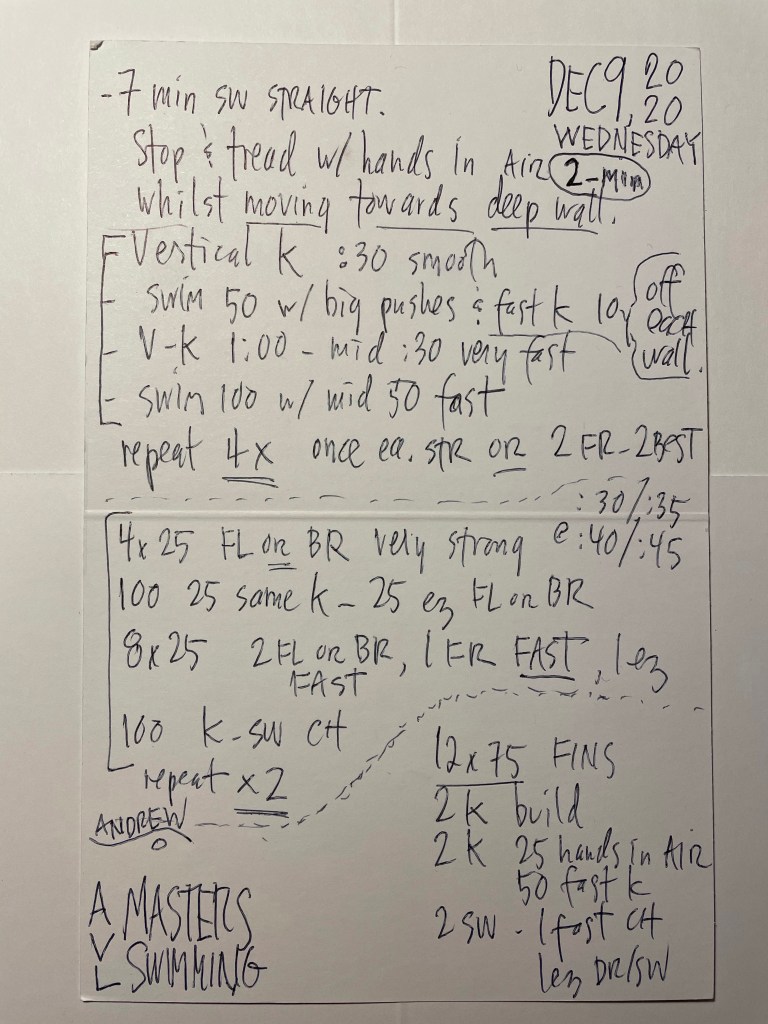 - 7 min SW STRAIGHT.
DEC 9, 20
20
WEDNESDAY
Stop & tread w/ hands in AIR 2-min
whilst moving towards deep wall.
- Vertical K :30 smooth
- swim 50 w/ big pushes & fast k 10 { off
each
wall.
- V-K 1:00 - mid :30 very fast
- swim 100 w/ mid 50 fast
repeat 4x once ea. STR OR 2 FR - 2 BEST
:30/:35
4x25 FL OR BR very strong @ :40/:45
100 25 same k - 25 ez FL OR BR
8x25 2 FL OR BR, 1 FR FAST, 1 ez
FAST
100 K-SW CH
repeat x2
ANDREW
12x75 FINS
2 K build
2 K 25 hands in AIR
50 fast k
2 SW - 1 fast CH
1 ez DR/SW
AVL MASTERS
SWIMMING